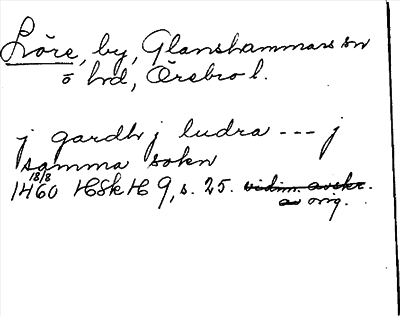 Löre, by, Glanshammars sn
o hd, Örebro l.
j gardh j ludra --- j
samma sokn
18/8
1460 HSkH 9, s. 25. vidim. avskr.
av orig.